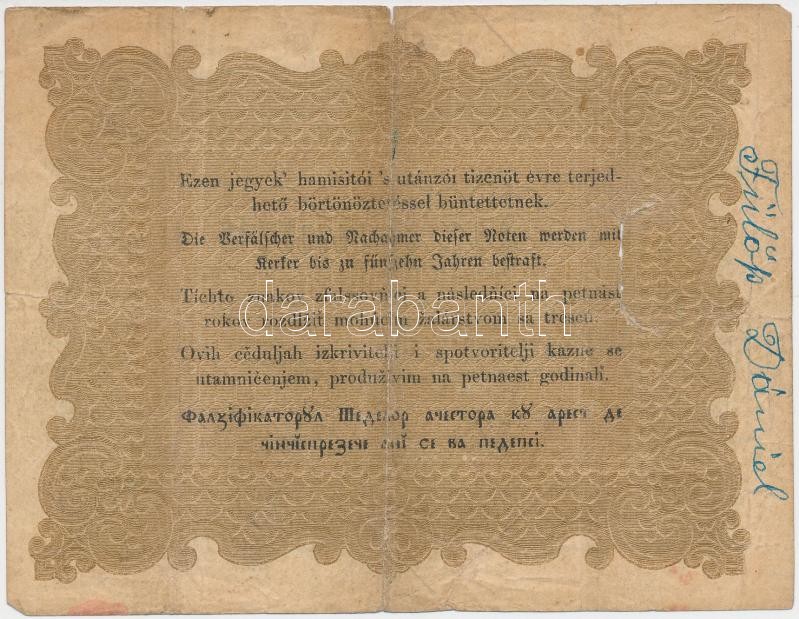 Ezen jegyek' hamisitói 's utánzói tizenöt évre terjed-
hető börtönöztetéssel büntettetnek.
Die Verfälscher und Nachahmer dieser Noten werden mit
Kerker bis zu fünfzehn Jahren bestraft.
Tíchto znakov zfalssovňíci a následňíci na petnást
rokov rozdlžiť mohúcím žalárstvom sa trescú.
Ovih cěduljah izkrivitelji i spotvoritelji kazne se
utamničenjem, produživim na petnaest godinah.
Фалзіфікаторꙋл шеделор ачестора кꙋ арест де
чінчіспрезече ані се ва педепсі.
Fülöp Dániel
darabanth